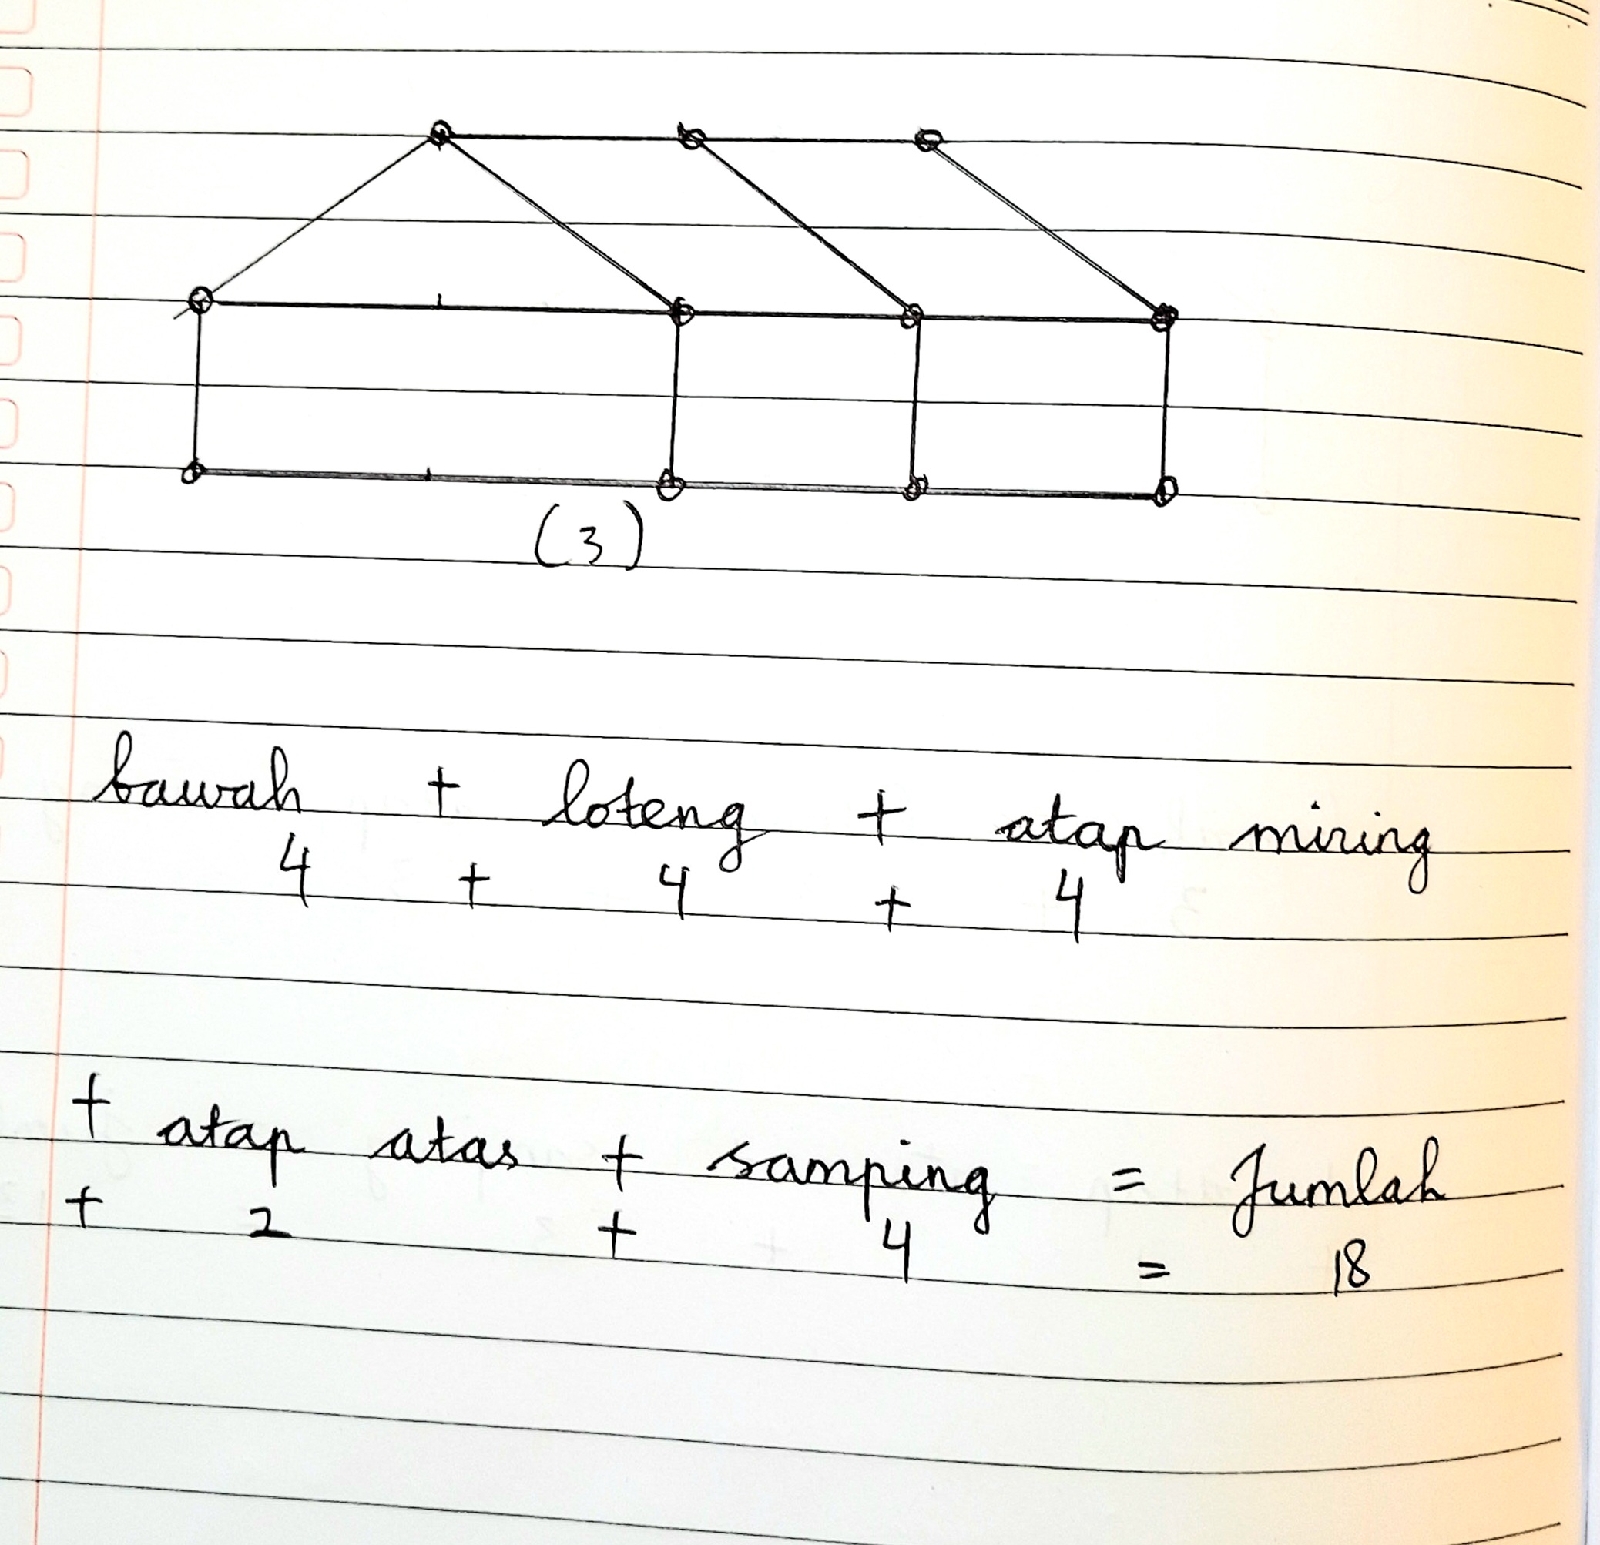 (3)
bawah + loteng + atap miring
4 + 4 + 4
+ atap atas + samping = Jumlah
+ 2 + 4 = 18